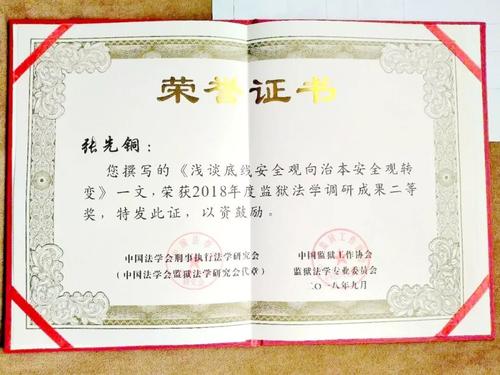 荣誉证书
张先铜：
您撰写的《浅谈底线安全观向治本安全观转
变》一文，荣获2018年度监狱法学调研成果二等
奖，特发此证，以资鼓励。
中国法学会刑事执行法学研究会
（中国法学会监狱法学研究会代章）
中国监狱工作协会
监狱法学专业委员会
二〇一八年九月